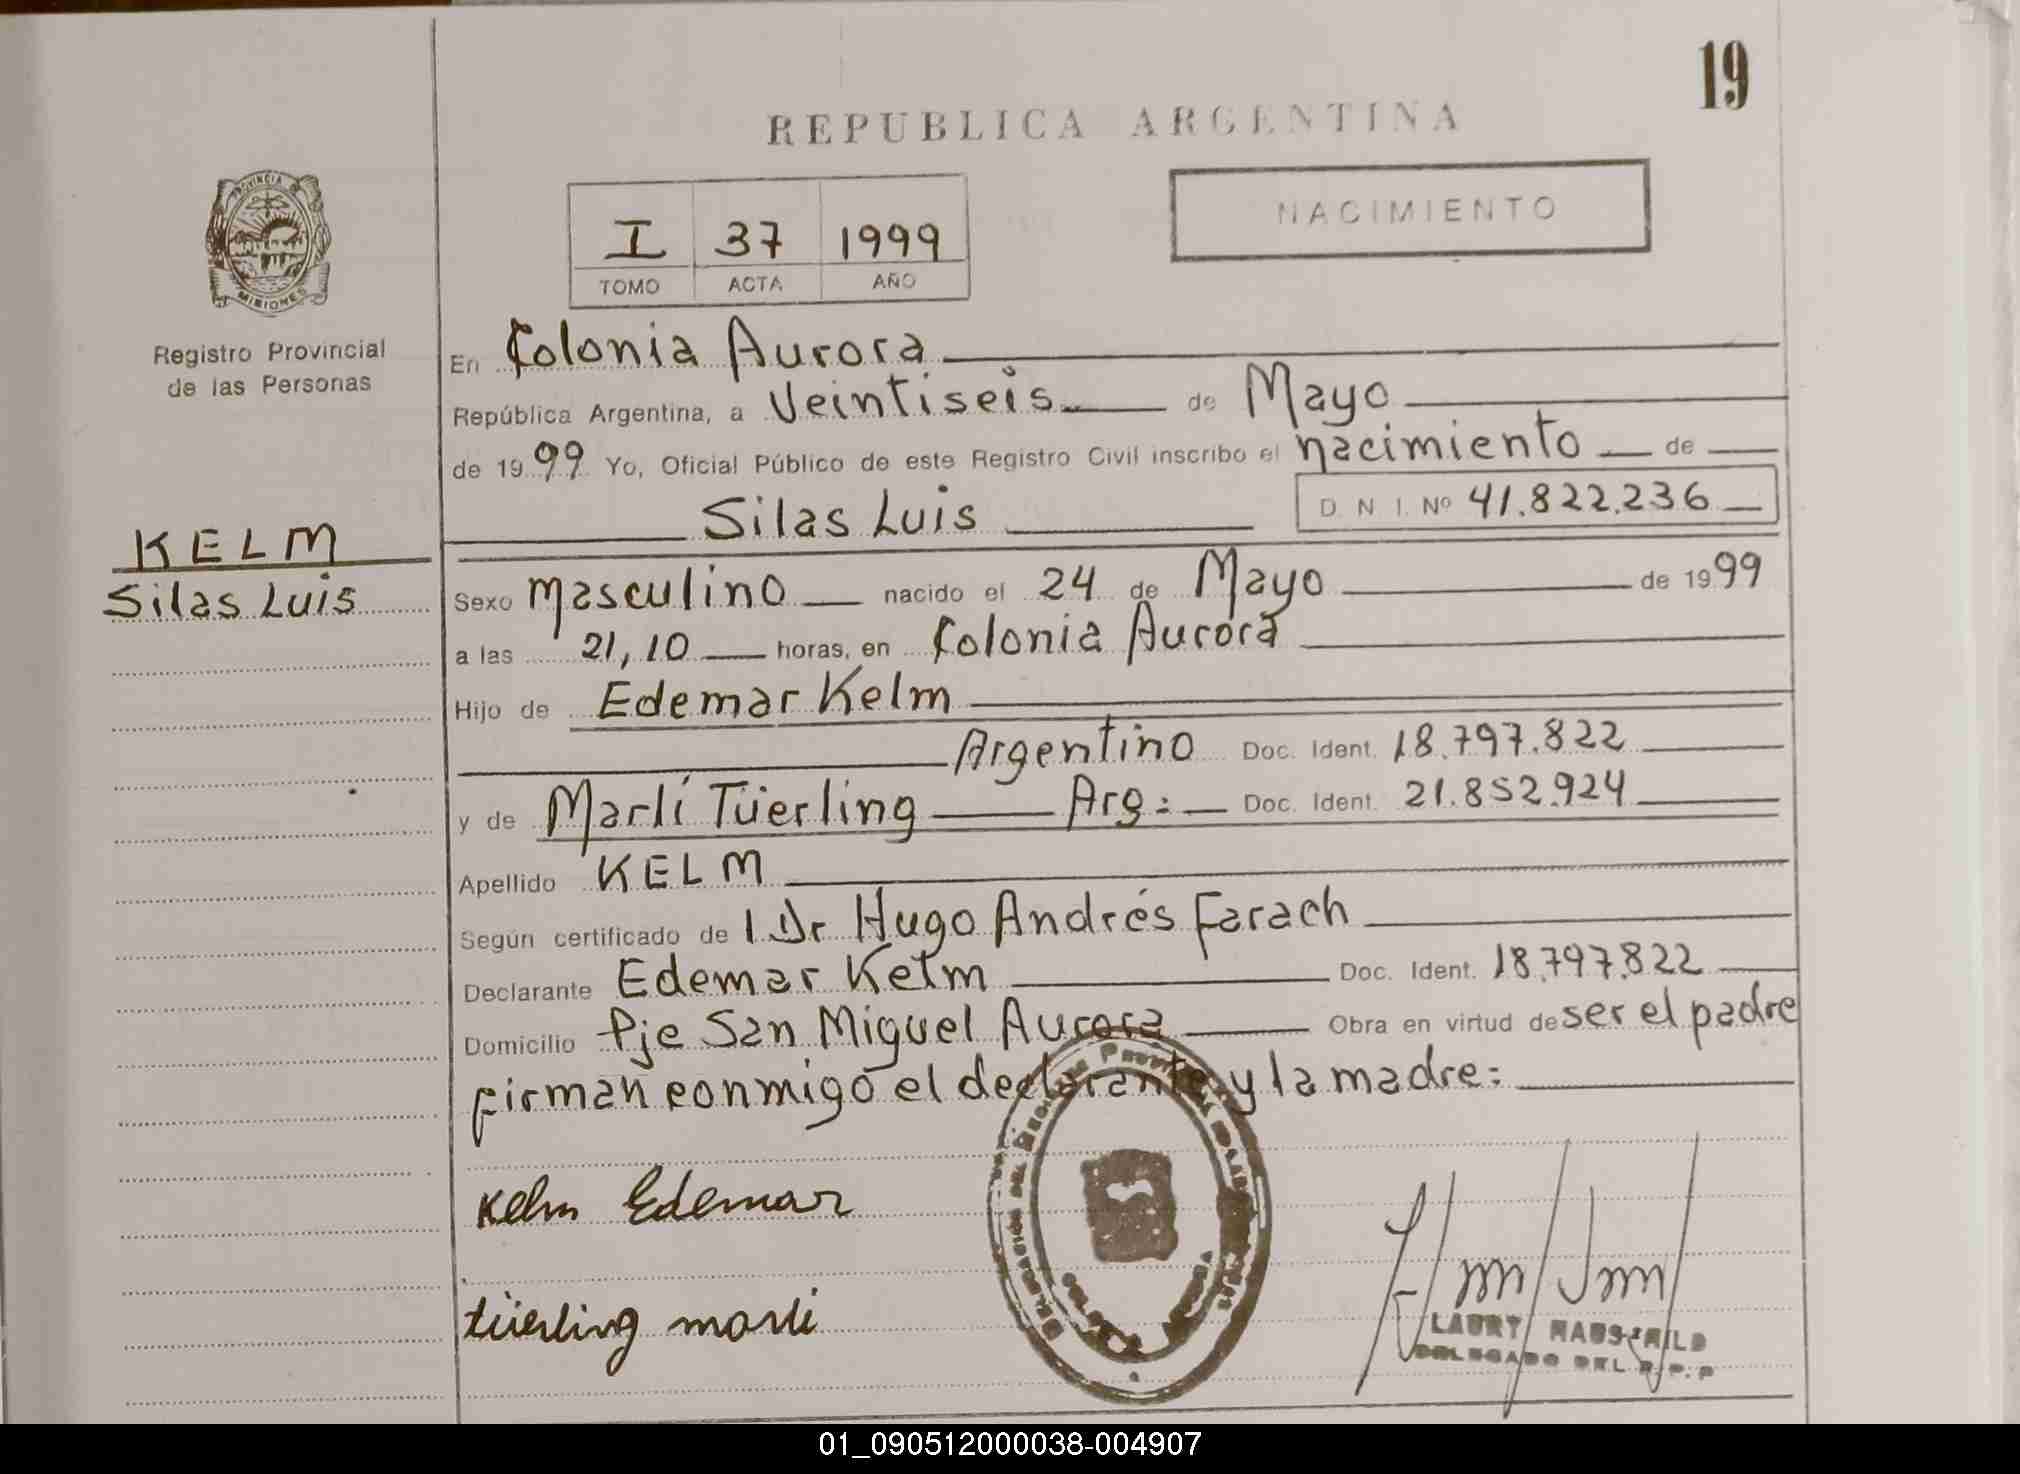 19
REPUBLICA ARGENTINA
NACIMIENTO
I 37 1999
TOMO ACTA AÑO
PROVINCIA
MISIONES
Registro Provincial
de las Personas
KELM
Silas Luis
En Colonia Aurora
República Argentina, a Veintiseis de Mayo
de 1999 Yo, Oficial Público de este Registro Civil inscribo el nacimiento de
Silas Luis D. N. I. Nº 41.822.236
Sexo Masculino nacido el 24 de Mayo de 1999
a las 21,10 horas, en Colonia Aurora
Hijo de Edemar Kelm
Argentino Doc. Ident. 18.797.822
y de Marlí Tüerling Arg: Doc. Ident. 21.852.924
Apellido KELM
Según certificado de l Dr Hugo Andrés Farach
Declarante Edemar Kelm Doc. Ident. 18.797.822
Domicilio Pje San Miguel Aurora Obra en virtud de ser el padre
firman conmigo el declarante y la madre:
Kelm Edemar
tüerling marli
LAURY HAUSCHILD
DELEGADO DEL R.P.P
01_090512000038-004907